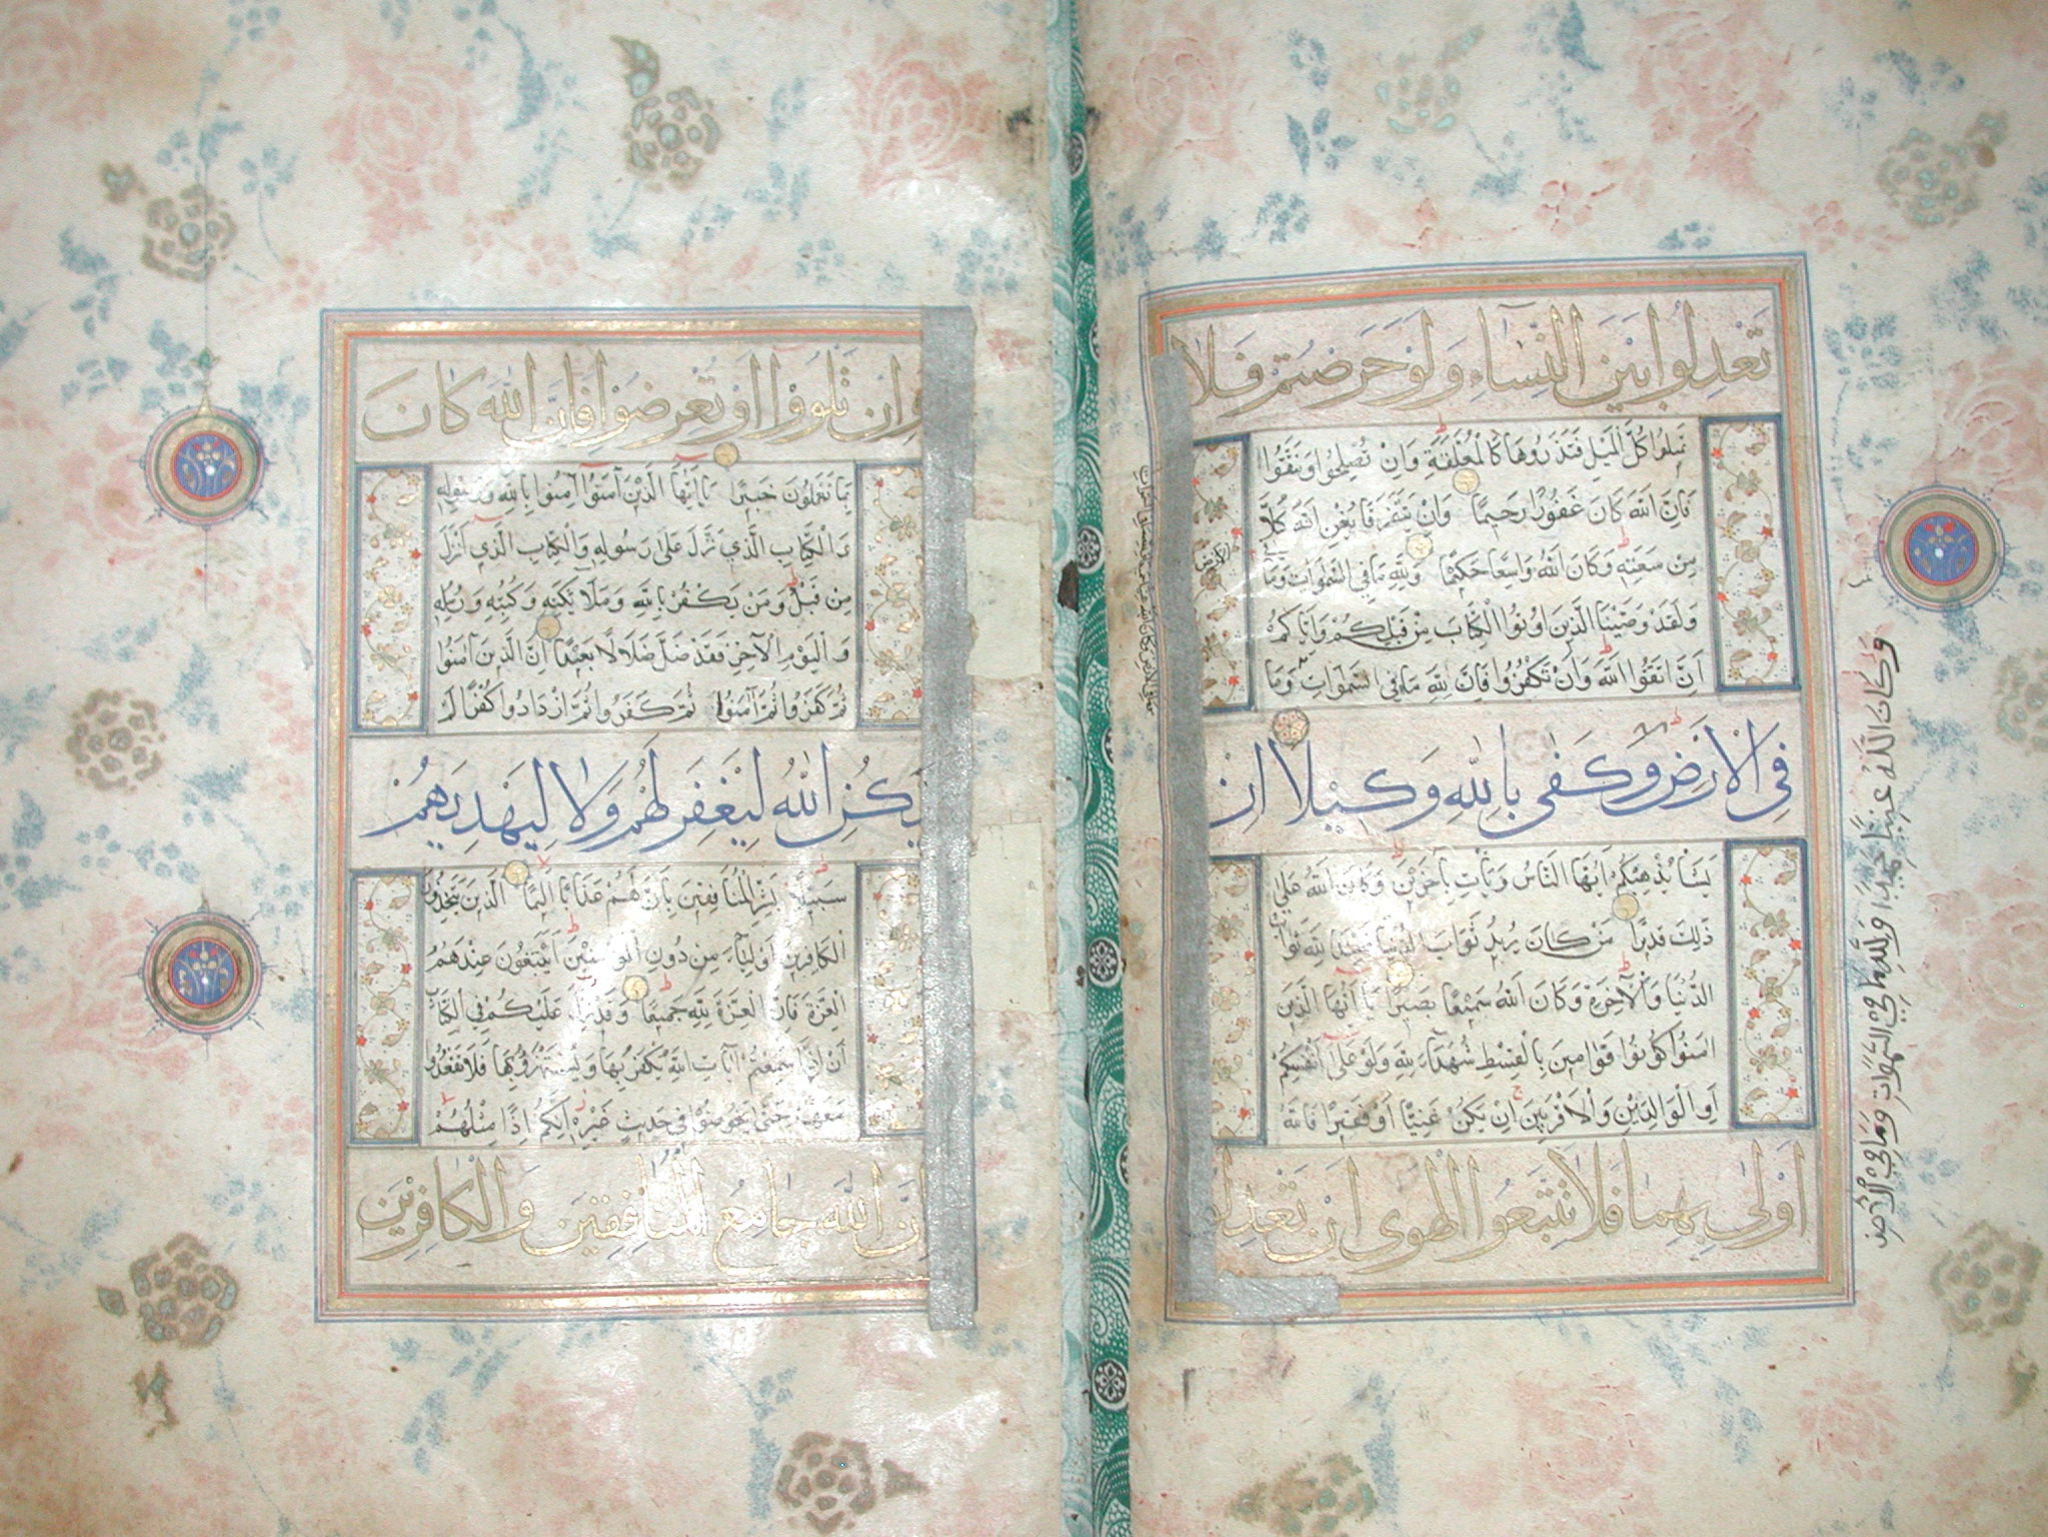 تَعْدِلُوا بَيْنَ النِّسَاءِ وَلَوْ حَرَصْتُمْ فَلَا
تَمِيلُوا كُلَّ الْمَيْلِ فَتَذَرُوهَا كَالْمُعَلَّقَةِ وَاِنْ تُصْلِحُوا وَتَتَّقُوا
فَاِنَّ اللهَ كَانَ غَفُورًا رَحِيمًا وَاِنْ يَتَفَرَّقَا يُغْنِ اللهُ كُلًّا
مِنْ سَعَتِهِ وَكَانَ اللهُ وَاسِعًا حَكِيمًا وَلِلّٰهِ مَا فِي السَّمٰوَاتِ وَمَا
وَلَقَدْ وَصَّيْنَا الَّذِينَ اُوتُوا الْكِتَابَ مِنْ قَبْلِكُمْ وَاِيَّاكُمْ
اَنِ اتَّقُوا اللهَ وَاِنْ تَكْفُرُوا فَاِنَّ لِلّٰهِ مَا فِي السَّمٰوَاتِ وَمَا
فِي الْاَرْضِ وَكَفٰى بِاللّٰهِ وَكِيلًا اِنْ
يَشَأْ يُذْهِبْكُمْ اَيُّهَا النَّاسُ وَيَأْتِ بِاٰخَرِينَ وَكَانَ اللهُ عَلٰى
ذٰلِكَ قَدِيرًا مَنْ كَانَ يُرِيدُ ثَوَابَ الدُّنْيَا فَعِنْدَ اللهِ ثَوَابُ
الدُّنْيَا وَالْاٰخِرَةِ وَكَانَ اللهُ سَمِيعًا بَصِيرًا يَا اَيُّهَا الَّذِينَ
اٰمَنُوا كُونُوا قَوَّامِينَ بِالْقِسْطِ شُهَدَاءَ لِلّٰهِ وَلَوْ عَلٰى اَنْفُسِكُمْ
اَوِ الْوَالِدَيْنِ وَالْاَقْرَبِينَ اِنْ يَكُنْ غَنِيًّا اَوْ فَقِيرًا فَاللهُ
اَوْلٰى بِهِمَا فَلَا تَتَّبِعُوا الْهَوٰى اَنْ تَعْدِلُوا
وَكَانَ اللّٰهُ غَنِيًّا حَمِيدًا وَلِلّٰهِ مَا فِي السَّمٰوَاتِ وَمَا فِي الْاَرْضِ
وَاِنْ تَلْوُوا اَوْ تُعْرِضُوا فَاِنَّ اللهَ كَانَ
بِمَا تَعْمَلُونَ خَبِيرًا يَا اَيُّهَا الَّذِينَ اٰمَنُوا اٰمِنُوا بِاللهِ وَرَسُولِهِ
وَالْكِتَابِ الَّذِي نَزَّلَ عَلٰى رَسُولِهِ وَالْكِتَابِ الَّذِي اَنْزَلَ
مِنْ قَبْلُ وَمَنْ يَكْفُرْ بِاللهِ وَمَلَائِكَتِهِ وَكُتُبِهِ وَرُسُلِهِ
وَالْيَوْمِ الْاٰخِرِ فَقَدْ ضَلَّ ضَلَالًا بَعِيدًا اِنَّ الَّذِينَ اٰمَنُوا
ثُمَّ كَفَرُوا ثُمَّ اٰمَنُوا ثُمَّ كَفَرُوا ثُمَّ ازْدَادُوا كُفْرًا لَمْ
يَكُنِ اللهُ لِيَغْفِرَ لَهُمْ وَلَا لِيَهْدِيَهُمْ
سَبِيلًا بَشِّرِ الْمُنَافِقِينَ بِاَنَّ لَهُمْ عَذَابًا اَلِيمًا الَّذِينَ يَتَّخِذُونَ
الْكَافِرِينَ اَوْلِيَاءَ مِنْ دُونِ الْمُؤْمِنِينَ اَيَبْتَغُونَ عِنْدَهُمُ
الْعِزَّةَ فَاِنَّ الْعِزَّةَ لِلّٰهِ جَمِيعًا وَقَدْ نَزَّلَ عَلَيْكُمْ فِي الْكِتَابِ
اَنْ اِذَا سَمِعْتُمْ اٰيَاتِ اللهِ يُكْفَرُ بِهَا وَيُسْتَهْزَأُ بِهَا فَلَا تَقْعُدُوا
مَعَهُمْ حَتّٰى يَخُوضُوا فِي حَدِيثٍ غَيْرِهِ اِنَّكُمْ اِذًا مِثْلُهُمْ
اِنَّ اللهَ جَامِعُ الْمُنَافِقِينَ وَالْكَافِرِينَ